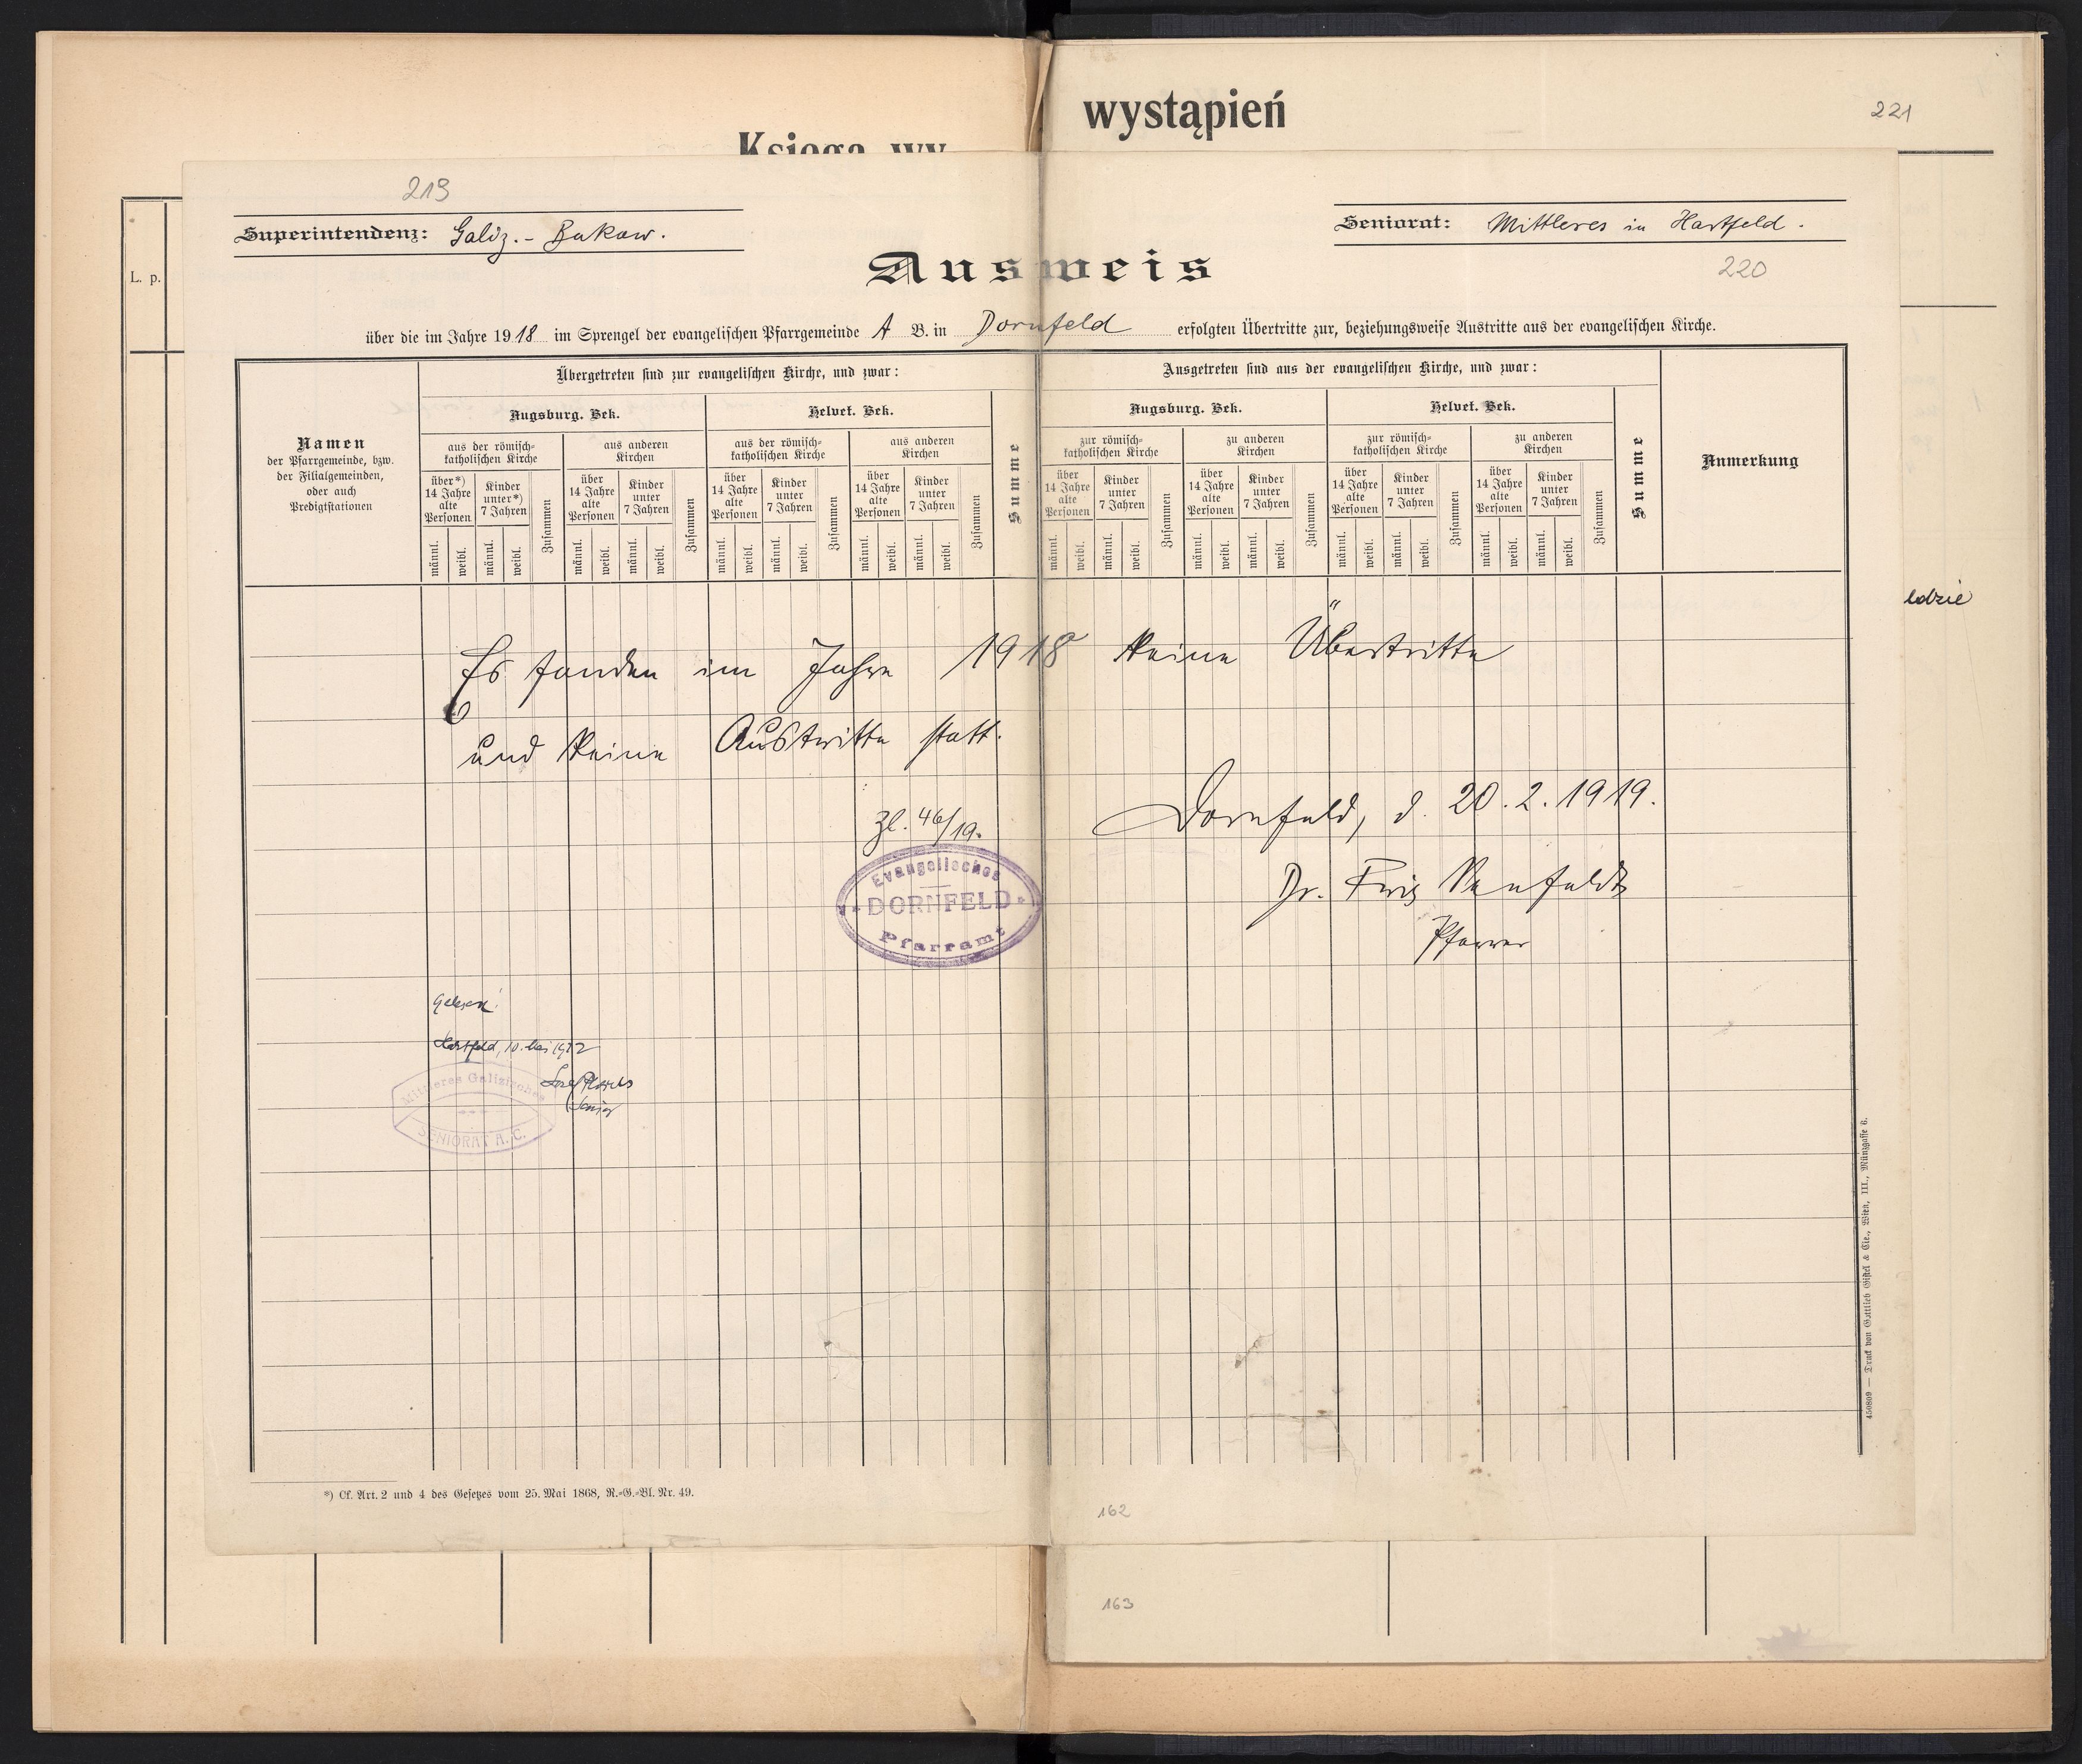 wystąpień
221
Księga wy
L. p.
ldzie
219
Superintendenz: Galiz.- Bukow.
Seniorat: Mittleres in Hartfeld.
220
Ausweis
über die im Jahre 1918 im Sprengel der evangelischen Pfarrgemeinde A B. in Dornfeld erfolgten Übertritte zur, beziehungsweise Austritte aus der evangelischen Kirche.
Namen
der Pfarrgemeinde, bzw.
der Filialgemeinden,
oder auch
Predigtstationen
Übergetreten sind zur evangelischen Kirche, und zwar:
Augsburg. Bek.
Helvet. Bek.
aus der römisch-
katholischen Kirche
aus anderen
Kirchen
aus der römisch-
katholischen Kirche
aus anderen
Kirchen
über*)
14 Jahre
alte
Personen
Kinder
unter*)
7 Jahren
Zusammen
über
14 Jahre
alte
Personen
Kinder
unter
7 Jahren
Zusammen
über
14 Jahre
alte
Personen
Kinder
unter
7 Jahren
Zusammen
über
14 Jahre
alte
Personen
Kinder
unter
7 Jahren
Zusammen
männl. weibl. männl. weibl. männl. weibl. männl. weibl. männl. weibl. männl. weibl. männl. weibl. männl. weibl.
Summe
Ausgetreten sind aus der evangelischen Kirche, und zwar:
Augsburg. Bek.
Helvet. Bek.
zur römisch-
katholischen Kirche
zu anderen
Kirchen
zur römisch-
katholischen Kirche
zu anderen
Kirchen
über
14 Jahre
alte
Personen
Kinder
unter
7 Jahren
Zusammen
über
14 Jahre
alte
Personen
Kinder
unter
7 Jahren
Zusammen
über
14 Jahre
alte
Personen
Kinder
unter
7 Jahren
Zusammen
über
14 Jahre
alte
Personen
Kinder
unter
7 Jahren
Zusammen
männl. weibl. männl. weibl. männl. weibl. männl. weibl. männl. weibl. männl. weibl. männl. weibl. männl. weibl.
Summe
Anmerkung
Es fanden im Jahre 1918 keine Übertritte
und keine Austritte statt.
Zl. 46/19.
Dornfeld, d. 20.2.1919.
Evangelisches
DORNFELD
Pfarramt
Dr. Friz
Pfarrer
Gelesen!
Hartfeld, 10. Mai 1922
Senior
Mittleres Galizisches
SENIORAT A. C.
450809 — Druck von Gottlieb Gistel & Cie., Wien, III., Münzgasse 6.
*) Cf. Art. 2 und 4 des Gesetzes vom 25. Mai 1868, R.-G.-Bl. Nr. 49.
162
163